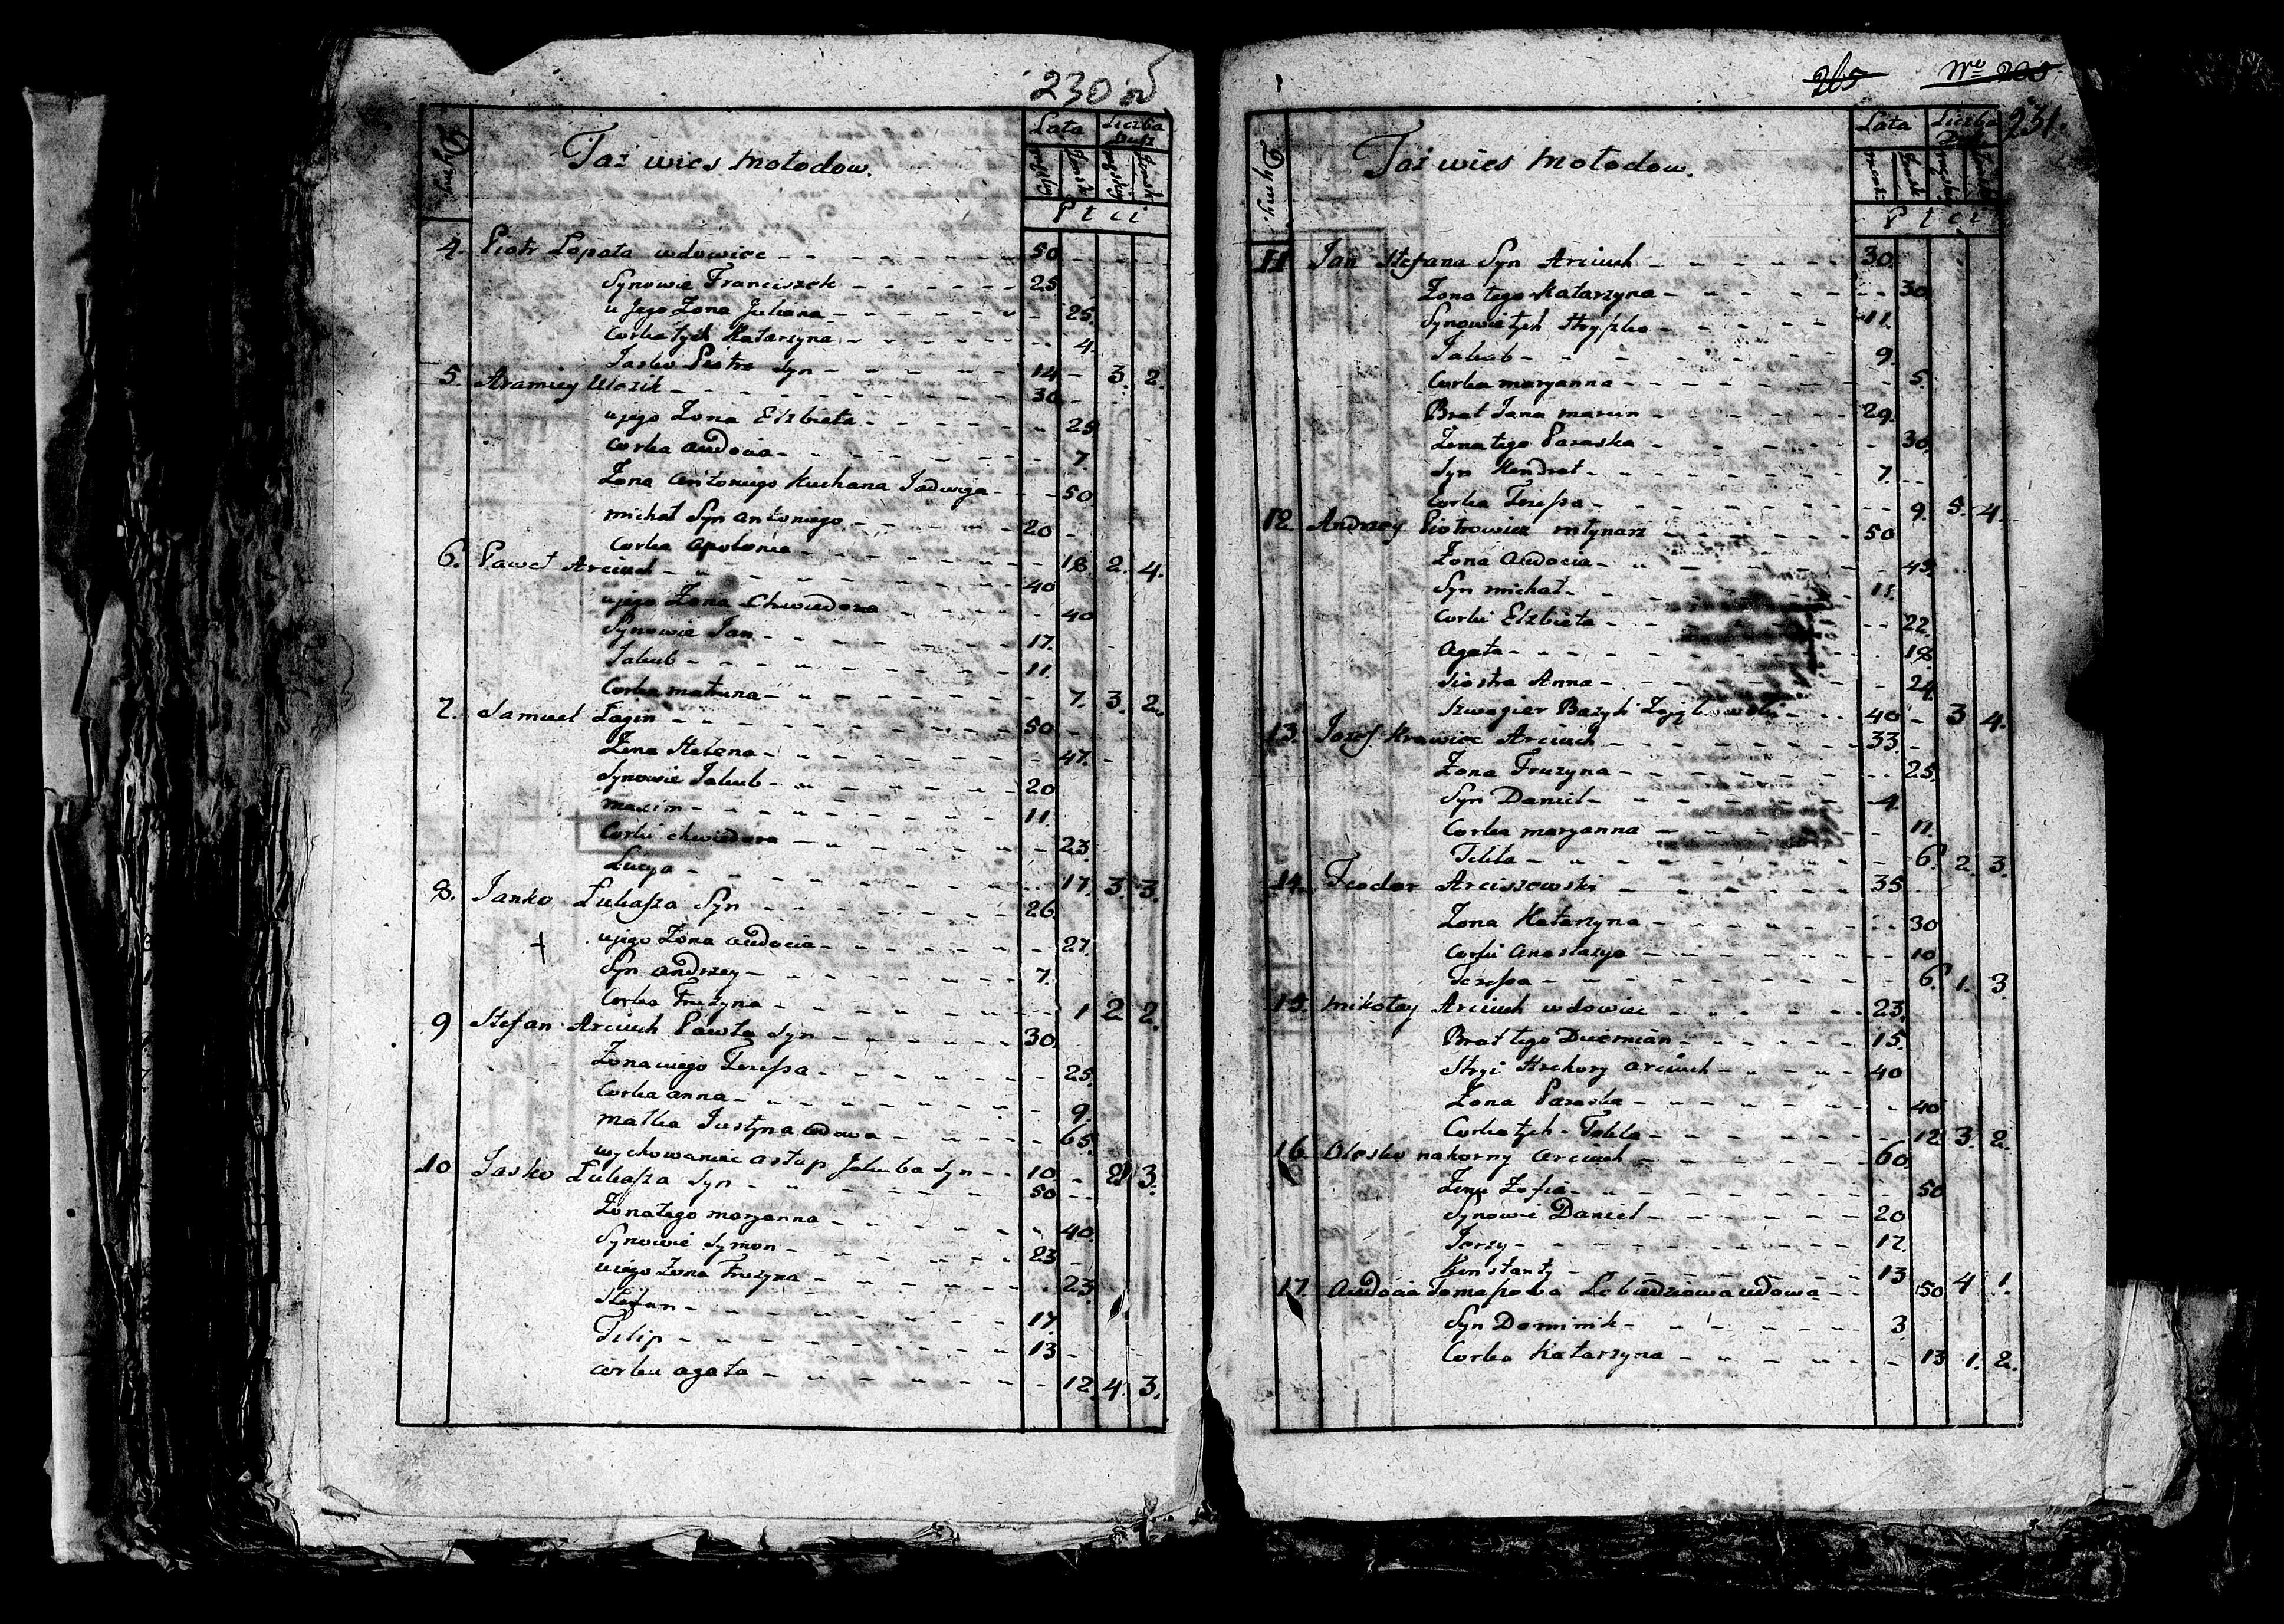 230 об
Dymy
Taż wieś Mołodow.
Lata
Liczba Dusz
męskiey
żeńsk
męskiey
żeńsk
Płci
4. Piotr Łopata wdowiec 50
Synowie Franciszek 25
u Jego Żona Juliana 25.
Corka tych Katarzyna 4.
Jasko Piotra Syn 14 3. 2.
5. Aramiey Wozik 30
ujego Żona Elżbieta 25
Corka Audocia 7.
Żona Antoniego Kuchana Jadwiga 50
Michał Syn Antoniego 20
Corka Apolonia 18 2. 4.
6. Paweł Arciuch 40
ujego Żona Chwiedora 40
Synowie Jan 17.
Jakub 11
Corka Matruna 7. 3. 2.
7. Samuel Łagin 50
Żona Helena 47.
Synowie Jakub 20
Maxim 11.
Corki Chwiedora 23.
Łucya 17. 3. 3.
8. Janko Łukasza Syn 26
ujego Żona Audocia 27.
Syn Andrzey 7.
Corka Fruzyna 1 2 2.
9 Stefan Arciuch Pawła Syn 30
Żona ujego Teressa 25
Corka Anna 9.
Matka Justyna wdowa 65.
wychowaniec Astap Jakuba Syn 10 2 3.
10 Jasko Łukasza Syn 50
Żona tego Maryanna 40.
Synowie Symon 23
ujego Żona Fruzyna 23
Stefan 17.
Filip 13
corka Agata 12. 4. 3.
265 Nro 208
231.
Dymy.
Taż wieś Mołodow.
Lata
Liczba Dusz
męsk
żeńsk
męskiey
żeńsk
Płci
11 Jan Stefana Syn Arciuch 30.
Żona tego Katarzyna 30.
Synowie tych Hryszko 11.
Jakub 9.
Corka Maryanna 5.
Brat Jana Marcin 29.
Żona tego Paraska 30.
Syn Kondrat 7.
Corka Teressa 9. 5. 4.
12. Andrzey Piotrowicz młynarz 50
Żona Audocia 45.
Syn Michał 11.
Corki Elżbieta 22.
Agata 18
Siostra Anna 24.
Szwagier Bazyli 40 3 4.
13. Jozef Krawiec Arciuch 33.
Żona Fruzyna 25.
Syn Daniel 4.
Corka Maryanna 11.
Tekla 6. 2. 3.
14. Teodor Arciszewski 35
Żona Katarzyna 30
Corki Anastazya 10
Teressa 6. 1. 3.
15. Mikołay Arciuch wdowiec 23.
Brat tego Diemian 15.
Stryi Hrehory Arciuch 40
Żona Paraska 40
Corka tych Tekla 12 3. 2.
16. Olesko Nahorny Arciuch 60.
Żona Zofia 50
Synowie Daniel 20
Jerzy 17.
Konstanty 13 4 1.
17. Audocia Tomaszowa Lebiedziowa wdowa 50
Syn Dominik 3
Corka Katarzyna 13 1. 2.